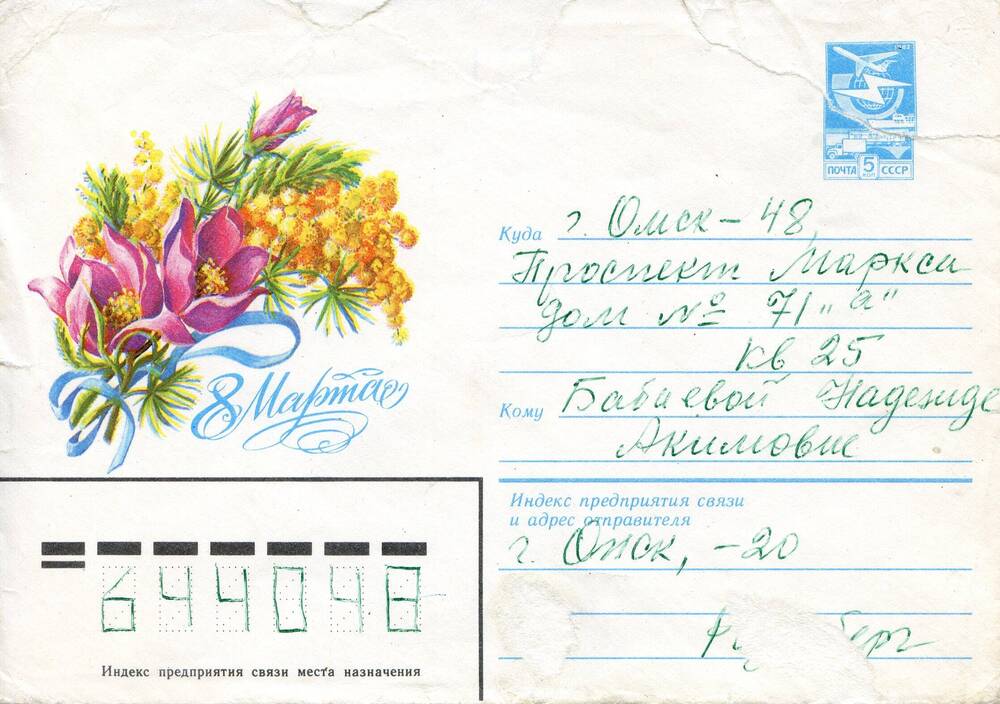 1982
ПОЧТА 5 КОП СССР
8 Марта
Куда г. Омск - 48,
Проспект Маркса
дом № 71 "а"
кв 25
Кому Бабаевой Надежде
Акимовне
Индекс предприятия связи
и адрес отправителя
г. Омск, -20
644048
Индекс предприятия связи места назначения